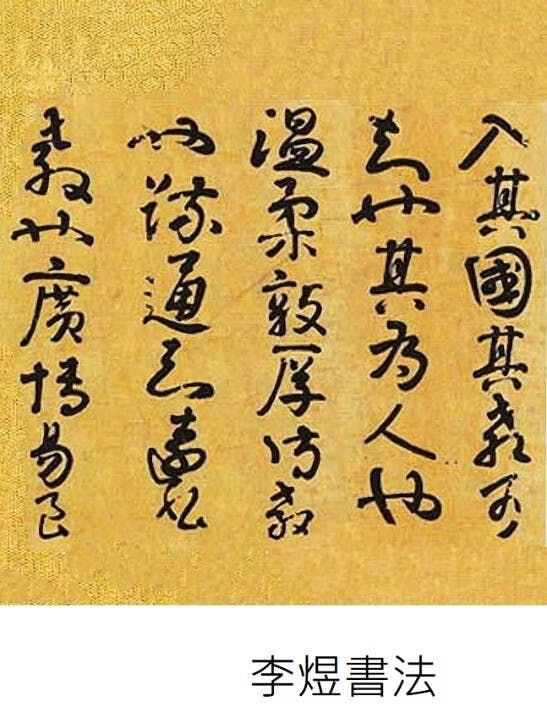 入其國其教可
知也其為人也
温柔敦厚詩教
也疏通知遠書
教也廣博易良
李煜書法